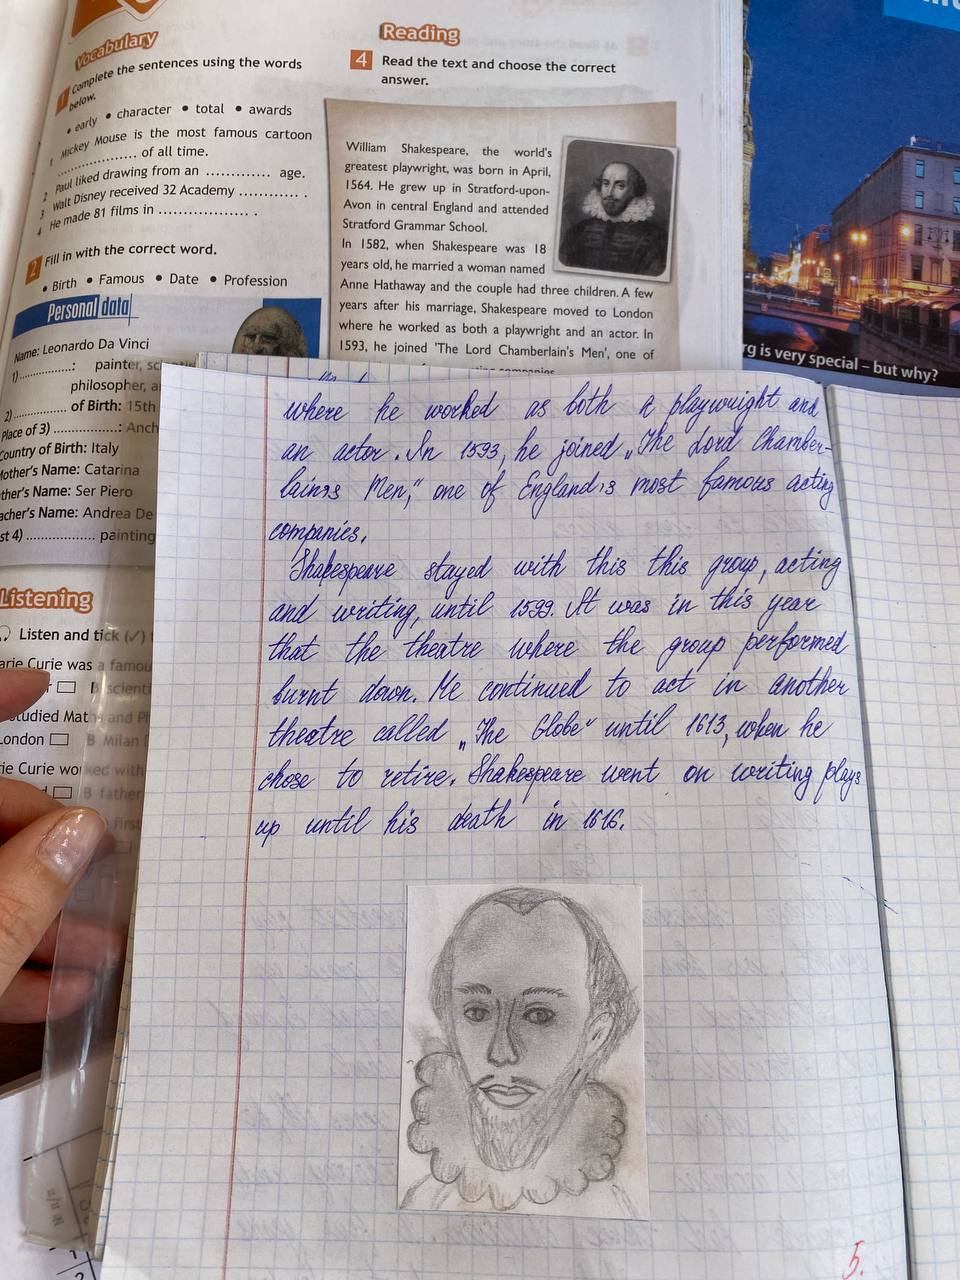 Vocabulary
1 Complete the sentences using the words
below.
• early • character • total • awards
1 Mickey Mouse is the most famous cartoon
.............. of all time.
2 Paul liked drawing from an ............ age.
3 Walt Disney received 32 Academy ............ .
4 He made 81 films in ................. .
2 Fill in with the correct word.
• Birth • Famous • Date • Profession
Personal data
Name: Leonardo Da Vinci
1) ..............: painter, sc
philosopher, a
2) .............. of Birth: 15th
Place of 3) ..............: Anch
Country of Birth: Italy
Mother's Name: Catarina
ther's Name: Ser Piero
acher's Name: Andrea De
st 4) .............. painting
Listening
Listen and tick (✓)
arie Curie was a famou
B scienti
studied Mat and P
London B Milan
ie Curie worked with
B father
first
Reading
4 Read the text and choose the correct
answer.
William Shakespeare, the world's
greatest playwright, was born in April,
1564. He grew up in Stratford-upon-
Avon in central England and attended
Stratford Grammar School.
In 1582, when Shakespeare was 18
years old, he married a woman named
Anne Hathaway and the couple had three children. A few
years after his marriage, Shakespeare moved to London
where he worked as both a playwright and an actor. In
1593, he joined 'The Lord Chamberlain's Men', one of
companies
rg is very special – but why?
where he worked as both a playwright and
an actor. In 1593, he joined „The Lord Chamber-
lain's Men," one of England's most famous acting
companies.
Shakespeare stayed with this this group, acting
and writing, until 1599. It was in this year
that the theatre where the group performed
burnt down. He continued to act in another
theatre called „The Globe" until 1613, when he
chose to retire. Shakespeare went on writing plays
up until his death in 1616.
5.